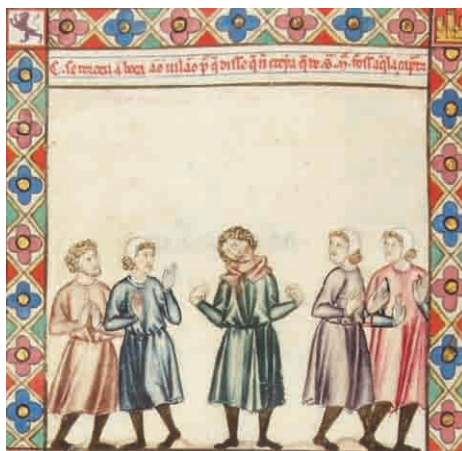 C. se torceu a boca ao uilão p̃ q̃ disse q̃ ñ creya q̃ de .S̃. M̃. foss aq̃la çapata